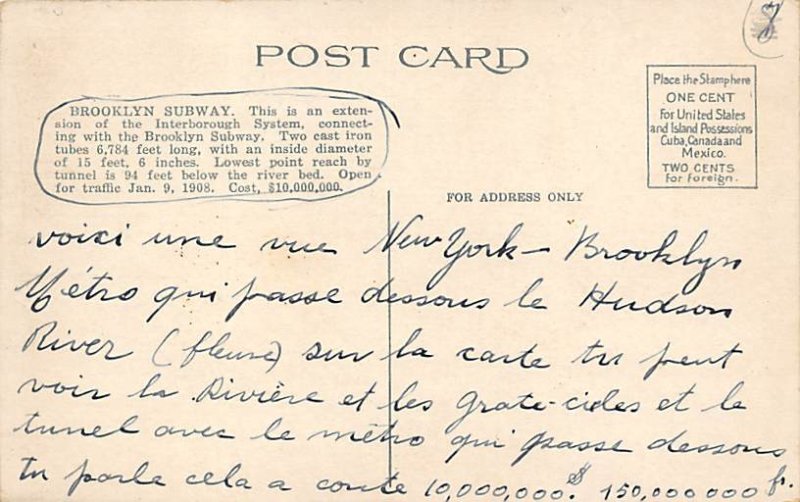 8
POST CARD
BROOKLYN SUBWAY. This is an exten-
sion of the Interborough System, connect-
ing with the Brooklyn Subway. Two cast iron
tubes 6,784 feet long, with an inside diameter
of 15 feet, 6 inches. Lowest point reach by
tunnel is 94 feet below the river bed. Open
for traffic Jan. 9, 1908. Cost, $10,000,000.
Place the Stamp here
ONE CENT
for United States
and Island Possessions
Cuba, Canada and
Mexico.
TWO CENTS
for Foreign.
FOR ADDRESS ONLY
voici une vue New York - Brooklyn
Métro qui passe dessous le Hudson
River (fleuve) sur la carte tu peut
voir la Rivière et les grate-cieles et le
tunel avec le métro qui passe dessous
tu parle cela a coute 10,000,000.$ 150,000,000 fr.